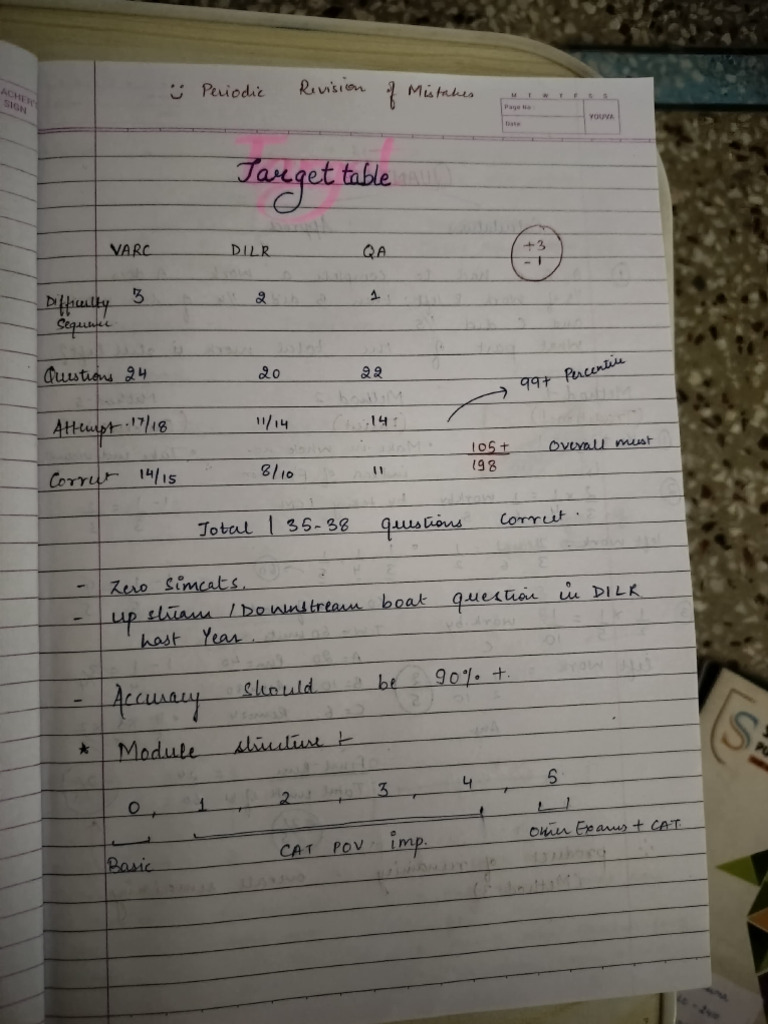 TEACHER'S SIGN
Periodic Revision of Mistakes
M T W T F S S
Page No.:
Date:
YOUVA
Target
Target table
VARC DILR QA
+3
-1
Difficulty Sequence 3 2 1
Questions 24 20 22
99+ Percentile
Attempt 17/18 11/14 14
105+
198
Overall must
Correct 14/15 8/10 11
Total | 35-38 questions correct.
- Zero Simcats.
- Up stream / Downstream boat question in DILR
Last Year.
- Accuracy should be 90% +.
* Module structure :-
0, 1, 2, 3, 4, 5
Basic CAT POV imp. Other Exams + CAT.